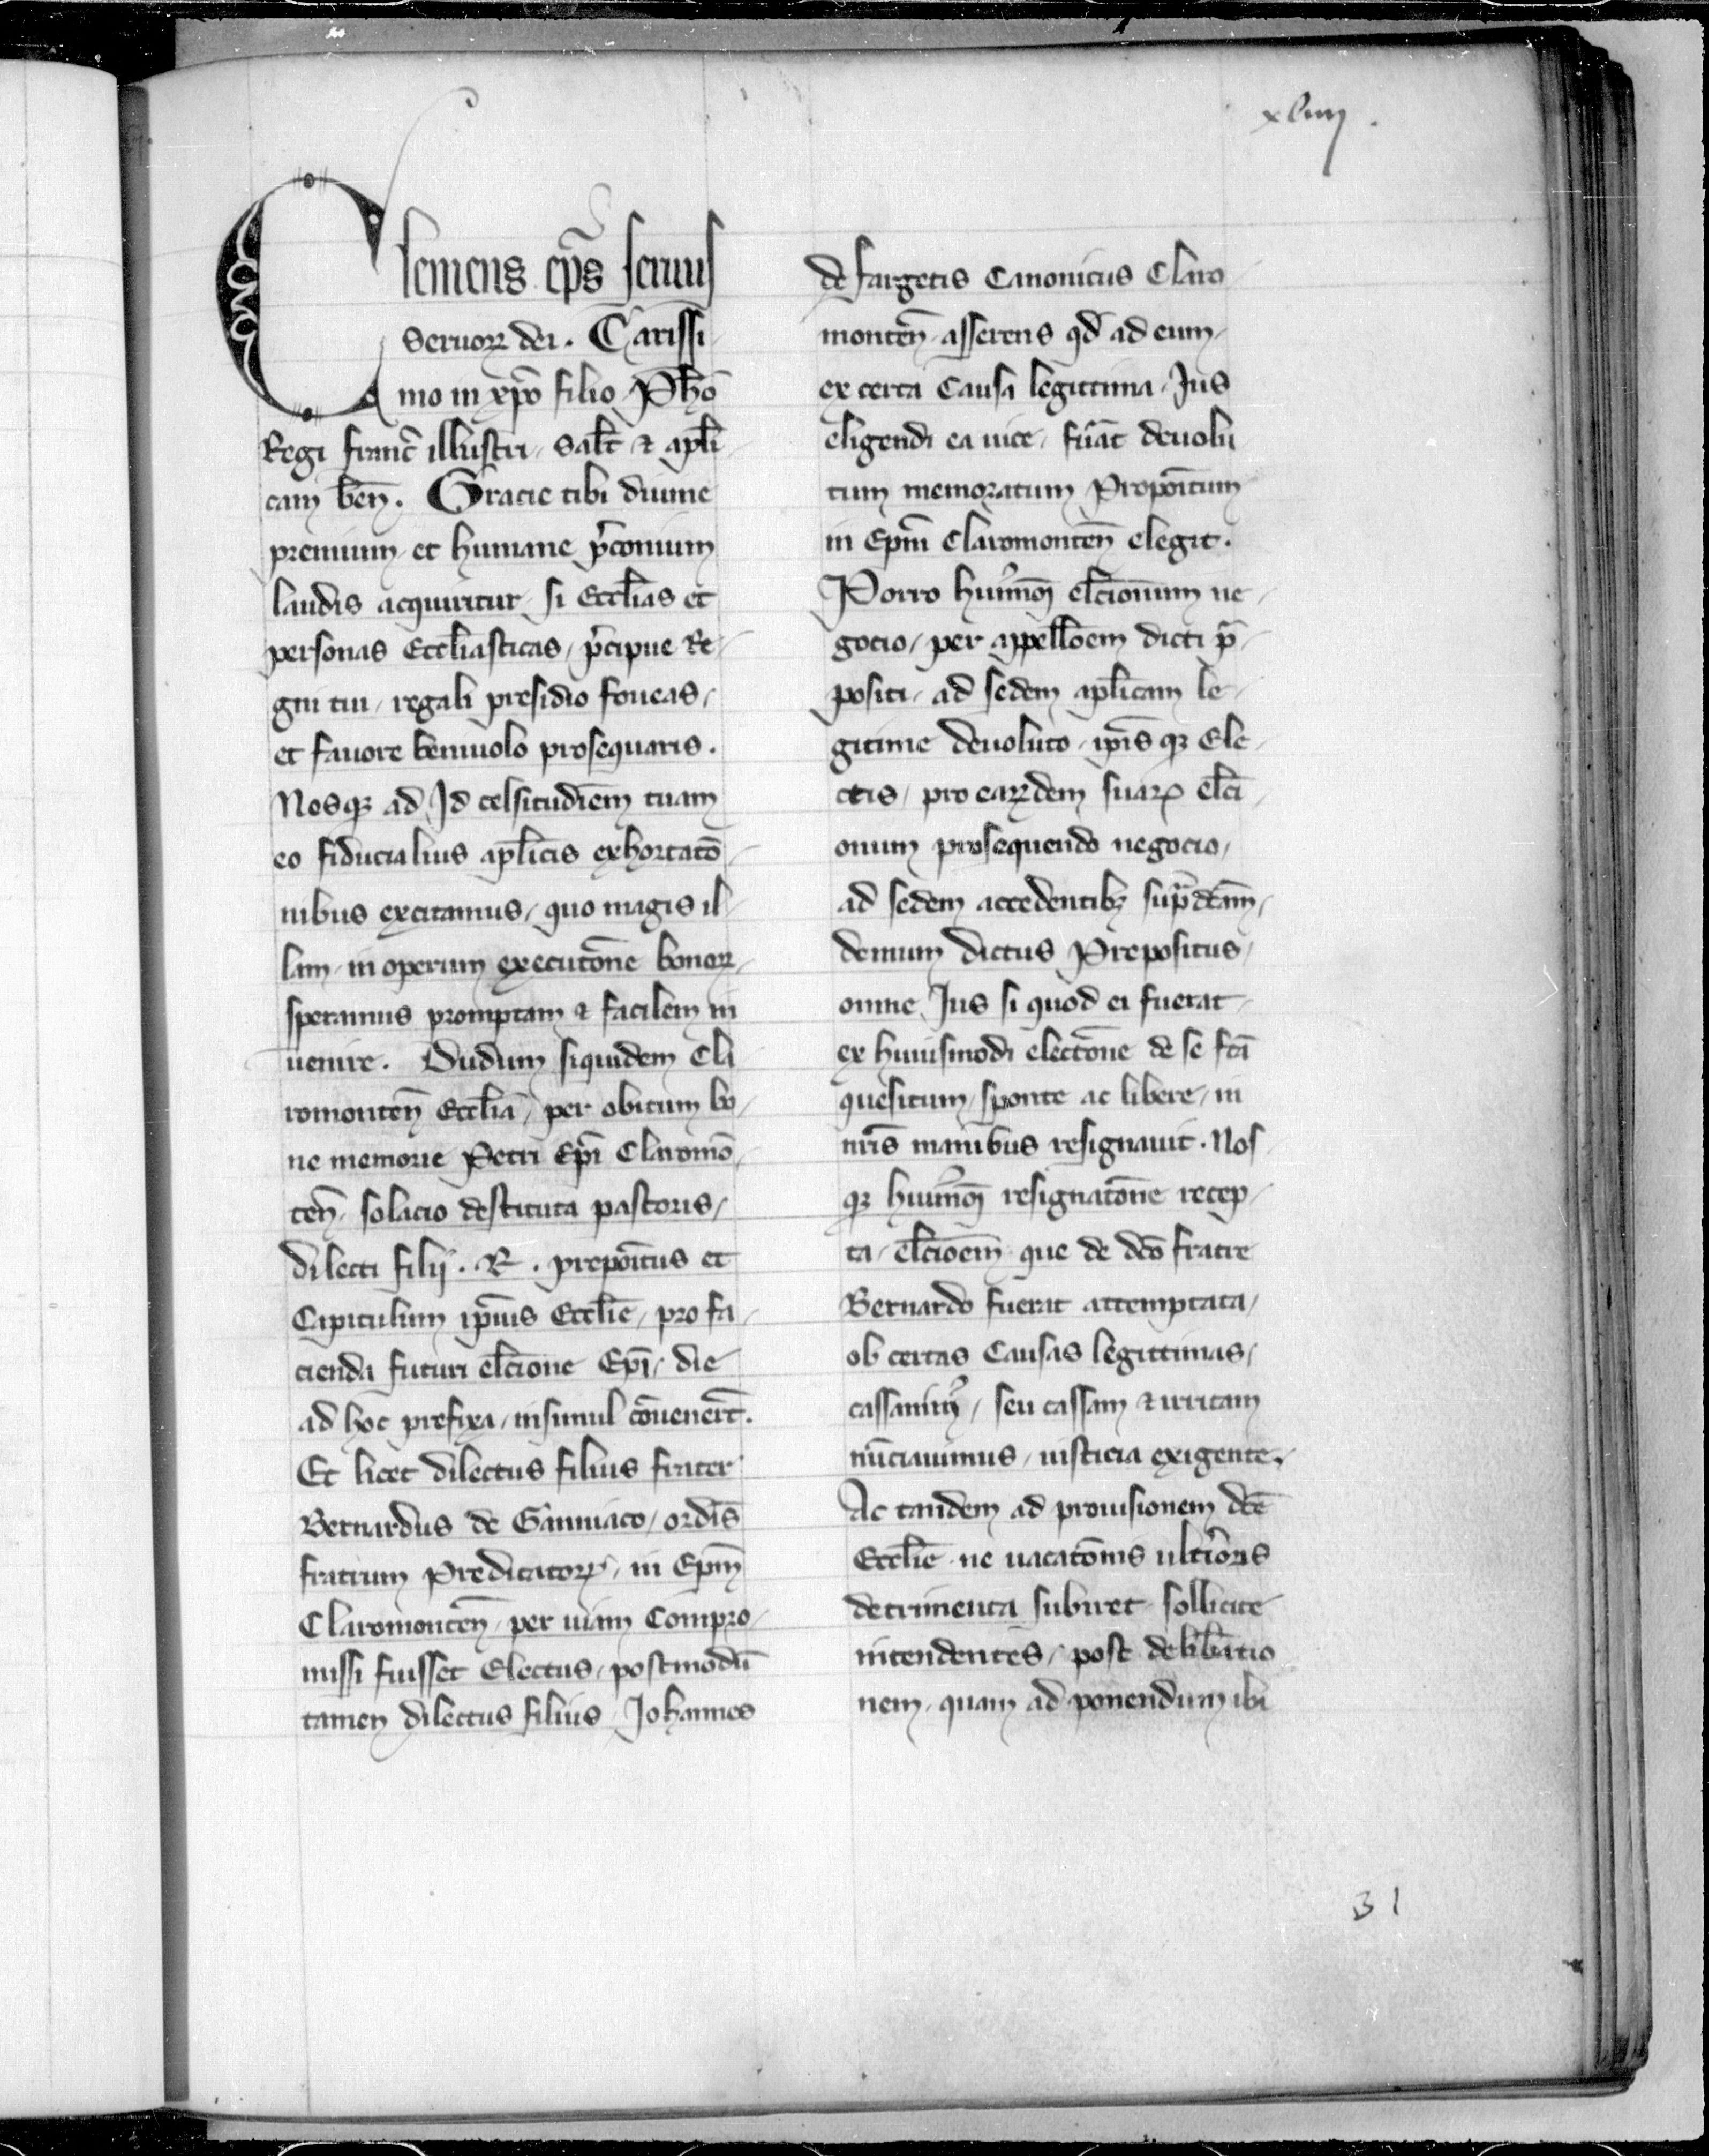 xliiij.
Clemens ep̄s seruus
Seruoꝝ dei. Carissi
mo in xp̄o filio Ph̄o
Regi franc̄ illustri. Sal̄t ⁊ ap̄li
cam ben̄. Gracie tibi diuine
premium et humane p̄conium
laudis acquiritur si Eccl̄ias et
personas Eccl̄iasticas, p̄cipue Re
gni tui, regali presidio foueas,
et fauore beniuolo prosequaris.
Nosqꝫ ad Id celsitudīem tuam
eo fiducialius ap̄licis exhortatō
nibus excitamus, quo magis il
lam, in operum executōne bonoꝝ
speramus promptam ⁊ facilem in
uenire. Dudum siquidem Cla
romonten̄ Eccl̄ia, per obitum bo
ne memorie Petri Ep̄i Claromō
ten̄ solacio destituta pastoris,
dilecti filij .R. prepoītus et
Capitulum ip̄ius Eccl̄ie, pro fa
cienda futuri el̄cione Ep̄i, die
ad hoc prefixa, insimul cōuener̄t.
Et licet dilectus filius frater
Bernardus de Ganniaco, ordīs
fratrum Predicatoꝝ, in Ep̄m
Claromonten̄ per uiam Compro
missi fuisset Electus, postmodū
tamen dilectus filius Johannes
de fargetis Canonicus Claro
monten̄ asserens qd̄ ad eum
ex certa Causa legittima Jus
eligendi ea uice, fūat deuolu
tum memoratum Prepoītum
in Ep̄m Claromonten̄ elegit.
Porro huiūmōi el̄cionum ne
gocio, per appell̄oem dicti p̄
positi, ad sedem ap̄licam le
gitime deuoluto, ip̄isqꝫ Ele
ctis, pro eaꝝdem suaꝝ el̄ci
onum prosequendo negocio,
ad sedem accedentibꝫ sup̄dc̄am,
demum dictus Prepositus,
omne Jus si quod ei fuerat
ex huiusmodi electōne de se fc̄a
quesitum, sponte ac libere, in
nr̄is manibus resignauit. Nos
qꝫ huiūmōi resignatōne recep
ta, el̄cioēm que de dc̄o fratre
Bernardo fuerat attemptata,
ob certas Causas legittimas,
cassauimꝰ, seu cassam ⁊ irritam
nūciauimus, iusticia exigente.
Ac tandem ad prouisionem dc̄e
Eccl̄ie ne uacatōnis ult̓ioris
detrimenta subiret sollicite
intendentes, post delib̄atio
nem, quam ad ponendum ibi
31